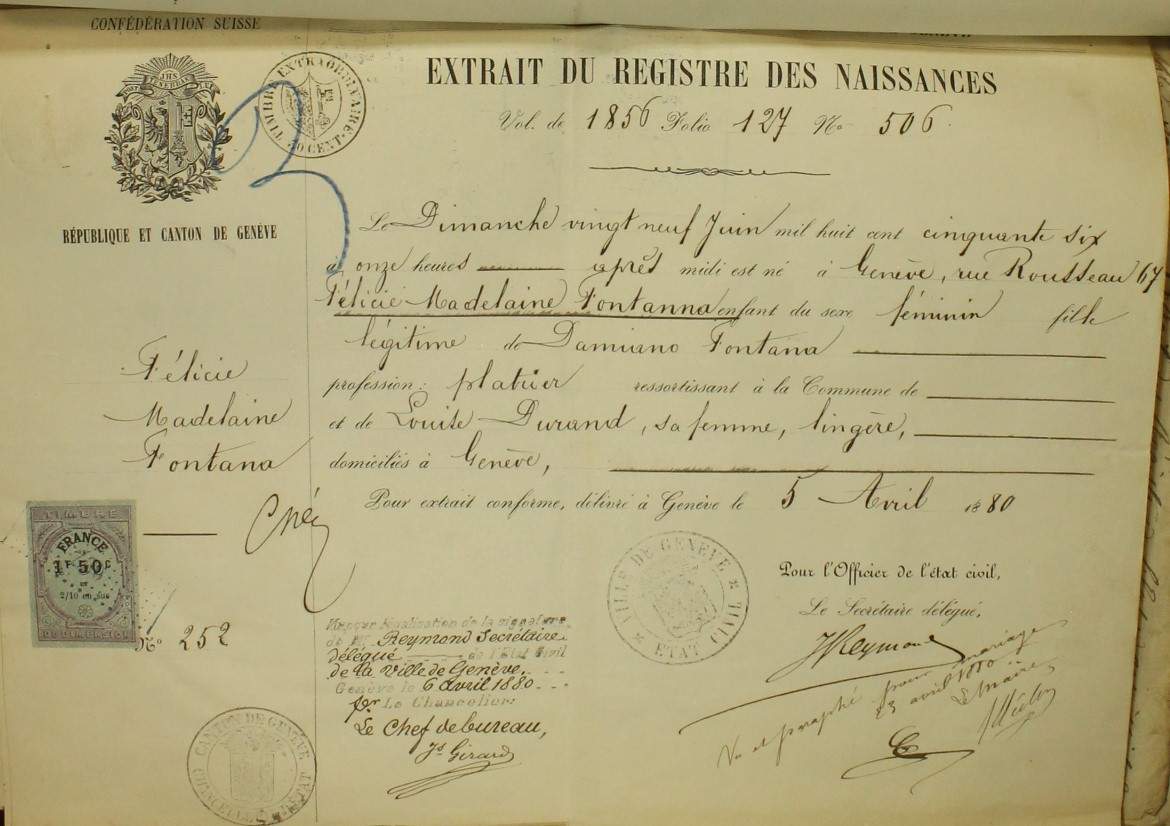 CONFÉDÉRATION SUISSE
TIMBRE EXTRAORDINAIRE
CENT.
EXTRAIT DU REGISTRE DES NAISSANCES
Vol. de 1856 Folio 127 No 506.
RÉPUBLIQUE ET CANTON DE GENÈVE
Le Dimanche vingt neuf Juin mil huit cent cinquante six
à onze heures après midi est né à Genève, rue Rousseau 67
Félicie Madelaine Fontanna enfant du sexe féminin fille
légitime de Damiano Fontana
profession: platrier ressortissant à la Commune de
et de Louise Durand, sa femme, lingère,
domiciliés à Genève,
Pour extrait conforme, délivré à Genève le 5 Avril 1880
Félicie
Madelaine
Fontana
TIMBRE
FRANCE
1F 50C
2/10 en sus
DIMENSION
No 252
VILLE DE GENÈVE
ETAT CIVIL
Pour l'Officier de l'état civil,
Le Secrétaire délégué,
JReymond
légalisation de la signature
de Mr Reymond Secrétaire
délégué de l'Etat Civil
de la Ville de Genève.
Genève le 6 avril 1880
pr Le Chancelier:
Le Chef de bureau,
Js Girard
CANTON DE GENÈVE
CHANCELLERIE D'ÉTAT
Vu et paraphé pour mariage
23 avril 1880
Le Maire